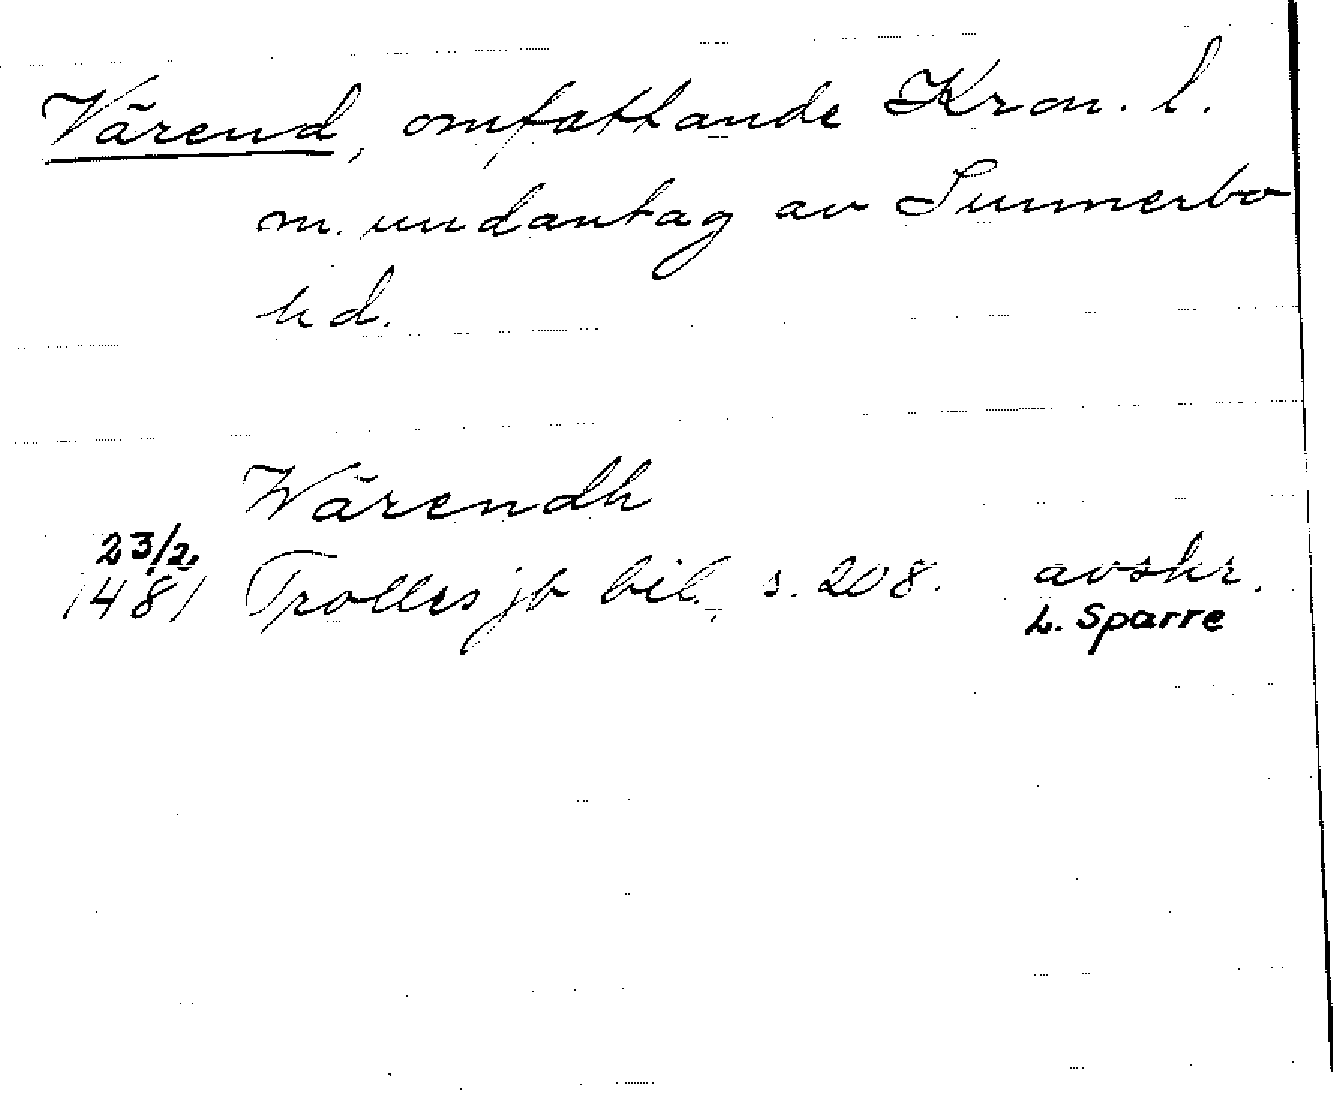 Värend, omfattande Kron. l.
m. undantag av Sunnerbo
hd.
Wärendh
23/2
1481 Trolles jb bil. s. 208. avskr.
L. Sparre